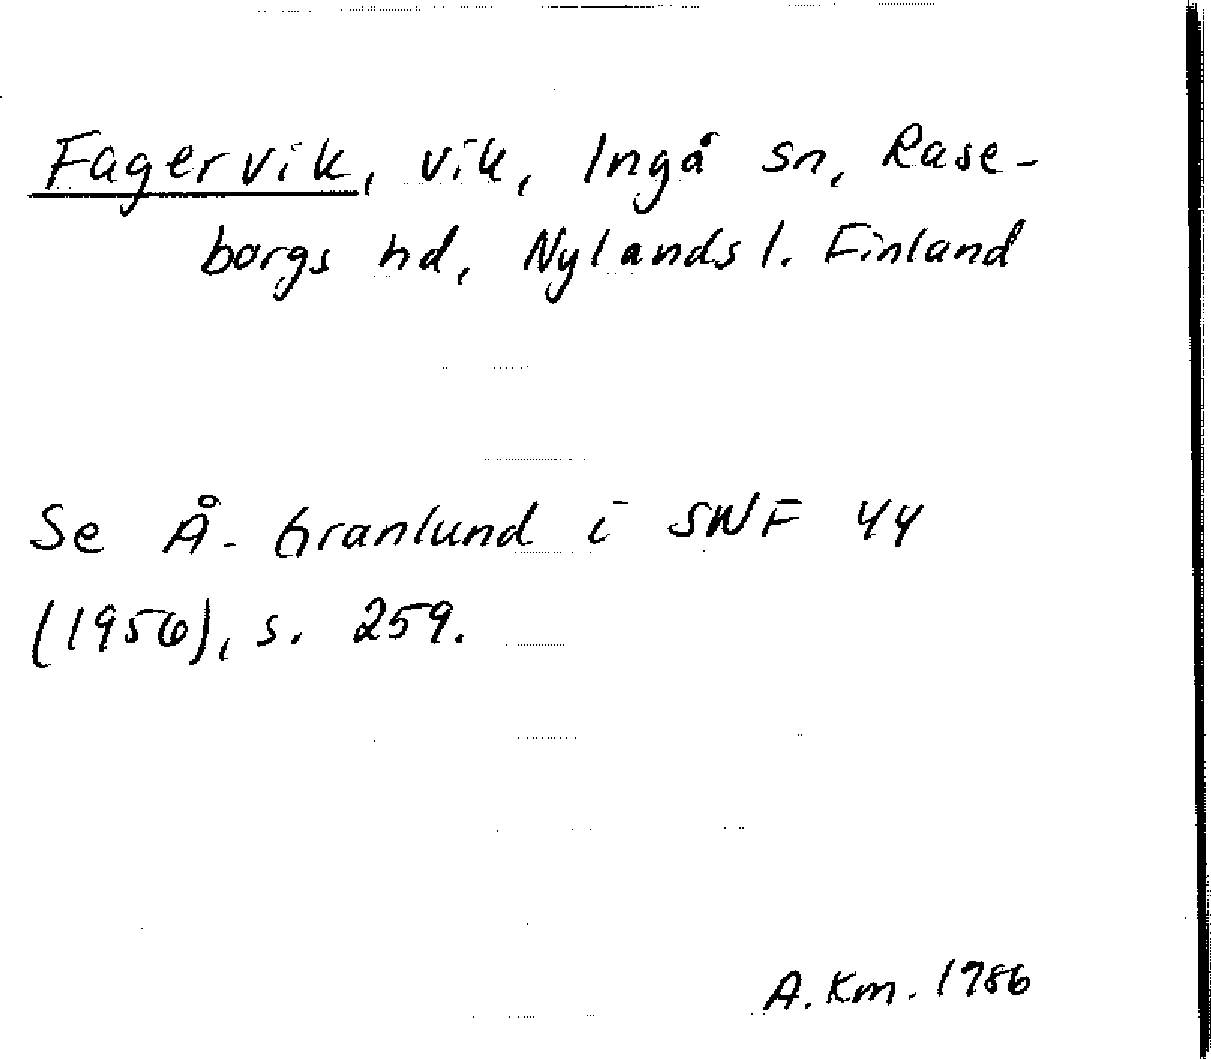 Fagervik, vik, Ingå sn, Rase-
borgs hd, Nylands l. Finland
Se Å. Granlund i SNF 44
(1956), s. 259.
A. Km. 1786